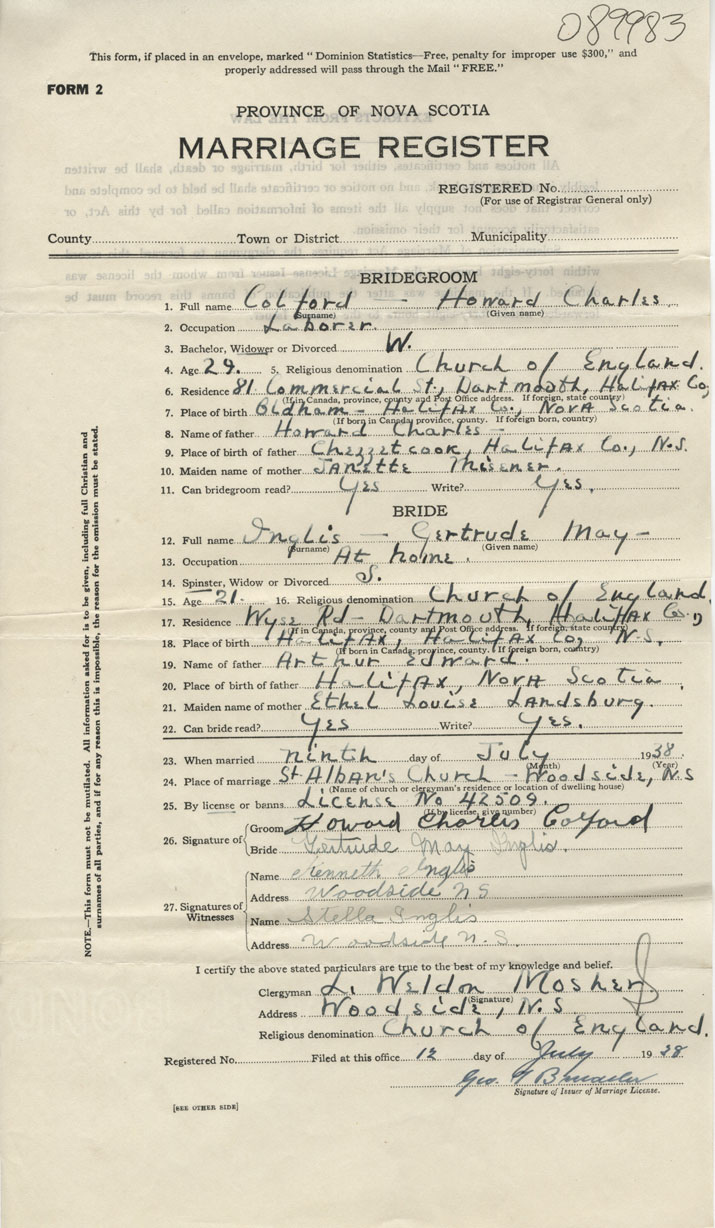 089983
This form, if placed in an envelope, marked "Dominion Statistics—Free, penalty for improper use $300," and
properly addressed will pass through the Mail "FREE."
FORM 2
PROVINCE OF NOVA SCOTIA
MARRIAGE REGISTER
REGISTERED No.
(For use of Registrar General only)
County Town or District Municipality
BRIDEGROOM
1. Full name Colford — Howard Charles
(Surname) (Given name)
2. Occupation Laborer.
3. Bachelor, Widower or Divorced W.
4. Age 29. 5. Religious denomination Church of England.
6. Residence 81 Commercial St., Dartmouth, Halifax Co,
(If in Canada, province, county and Post Office address. If foreign, state country)
7. Place of birth Oldham - Halifax Co., Nova Scotia.
(If born in Canada, province, county. If foreign born, country)
8. Name of father Howard Charles -
9. Place of birth of father Chezzetcook, Halifax Co., N.S.
10. Maiden name of mother Janette Thisener.
11. Can bridegroom read? Yes Write? Yes.
BRIDE
12. Full name Inglis — Gertrude May -
(Surname) (Given name)
13. Occupation At home.
14. Spinster, Widow or Divorced S.
15. Age 21. 16. Religious denomination Church of England.
17. Residence Wyse Rd - Dartmouth, Halifax Co.,
(If in Canada, province, county and Post Office address. If foreign, state country)
18. Place of birth Halifax, Halifax Co, N.S.
(If born in Canada, province, county. If foreign born, country)
19. Name of father Arthur Edward.
20. Place of birth of father Halifax, Nova Scotia.
21. Maiden name of mother Ethel Louise Landsburg.
22. Can bride read? Yes Write? Yes.
23. When married ninth day of July 1938
(Month) (Year)
24. Place of marriage St Alban's Church - Woodside, N.S
(Name of church or clergyman's residence or location of dwelling house)
25. By license or banns License No 42509.
(If by license, give number)
26. Signature of
Groom Howard Charles Colford
Bride Gertrude May Inglis.
27. Signatures of Witnesses
Name Kenneth Inglis
Address Woodside N S
Name Stella Inglis
Address Woodside N.S.
I certify the above stated particulars are true to the best of my knowledge and belief.
Clergyman L. Weldon Mosher
(Signature)
Address Woodside, N.S
Religious denomination Church of England.
Registered No. Filed at this office 12 day of July 1938
Geo.
Signature of Issuer of Marriage License.
[SEE OTHER SIDE]
NOTE.—This form must not be mutilated. All information asked for is to be given, including full Christian and
surnames of all parties, and if for any reason this is impossible, the reason for the omission must be stated.